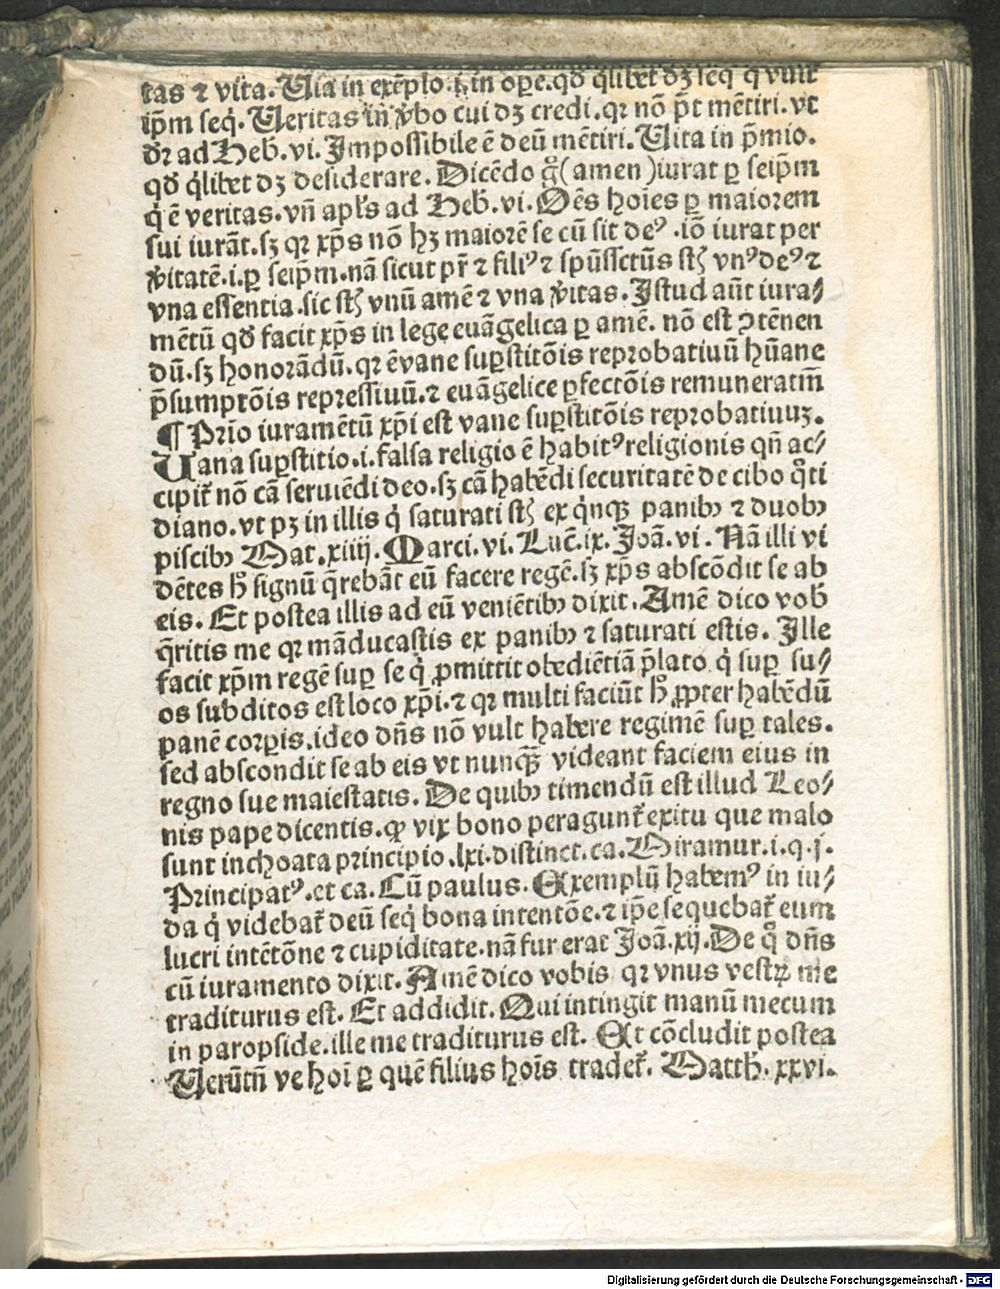 tas ⁊ vita. Uia in exẽplo .i. in oꝑe. qđ qͥlibet dꝫ seq̇ q̇ vult
ip̃m seq̇. Ueritas in v̾bo cui dꝫ credi. qꝛ nõ p̃t mẽtiri. vt
dꝛ ad Heb. vi. Impossibile ẽ deũ mẽtiri. Uita in p̃mio.
qđ qͥlibet dꝫ desiderare. Dicẽdo gͦ (amen) iurat ꝑ seip̃m
q̇ ẽ veritas. vñ apl̃s ad Heb. vi. Oẽs hoĩes ꝑ maiorem
sui iurãt. sꝫ qꝛ xp̃s nõ hꝫ maiorẽ se cũ sit deꝰ. iõ iurat per
v̾itatẽ .i. ꝑ seip̃m. nã sicut pr̃ ⁊ filiꝰ ⁊ spũssctũs st̃ vnꝰ deꝰ ⁊
vna essentia. sic st̃ vnũ amẽ ⁊ vna v̾itas. Istud aũt iura⸗
mẽtũ qđ facit xp̃s in lege euãgelica ꝑ amẽ. nõ est ꝯtẽnen
dũ. sꝫ honorãdũ. qꝛ ẽ vane suꝑstitõis reprobatiuũ hũane
p̃sumptõis repressiuũ. ⁊ euãgelice ꝑfectõis remuneratiũ
¶ Prĩo iuramẽtũ xp̃i est vane suꝑstitõis reprobatiuuꝫ.
Uana suꝑstitio .i. falsa religio ẽ habitꝰ religionis qñ ac⸗
cipit̃ nõ cã seruiẽdi deo. sꝫ cã habẽdi securitatẽ de cibo qͦti
diano. vt pꝫ in illis q̇ saturati st̃ ex qͥnqꝫ panibꝫ ⁊ duobꝫ
piscibꝫ Mat. xiiij. Marci. vi. Luc̃. ix. Joã. vi. Nã illi vi
dẽtes h̃ signũ q̃rebãt eũ facere regẽ. sꝫ xp̃s abscõdit se ab
eis. Et postea illis ad eũ veniẽtibꝫ dixit. Amẽ dico vob̃
q̃ritis me qꝛ mãducastis ex panibꝫ ⁊ saturati estis. Ille
facit xp̃m regẽ suꝑ se q̇ ꝓmittit obediẽtiã p̃lato q̇ suꝑ su⸗
os subditos est loco xp̃i. ⁊ qꝛ multi faciũt h̃ ꝓpter habẽdũ
panẽ corꝑis. ideo dñs nõ vult habere regimẽ suꝑ tales.
sed abscondit se ab eis vt nunqꝫ̃ videant faciem eius in
regno sue maiestatis. De quibꝫ timendũ est illud Leo⸗
nis pape dicentis. ꝙ vix bono peragunt̃ exitu que malo
sunt inchoata principio. lxi. distinct. ca. Miramur. i. q. j.
Principatꝰ. et ca. Cũ paulus. Exemplũ habemꝰ in iu⸗
da q̇ videbat̃ deũ seq̇ bona intentõe. ⁊ ip̃e sequebat̃ eum
lucri intẽtõne ⁊ cupiditate. nã fur erat Joã. xij. De qͦ dñs
cũ iuramento dixit. Amẽ dico vobis qꝛ vnus vestꝝ me
traditurus est. Et addidit. Qui intingit manũ mecum
in paropside. ille me traditurus est. Et cõcludit postea
Uerũtñ ve hoĩ ꝑ quẽ filius hoĩs tradet̃. Matth. xxvi.
Digitalisierung gefördert durch die Deutsche Forschungsgemeinschaft - DFG